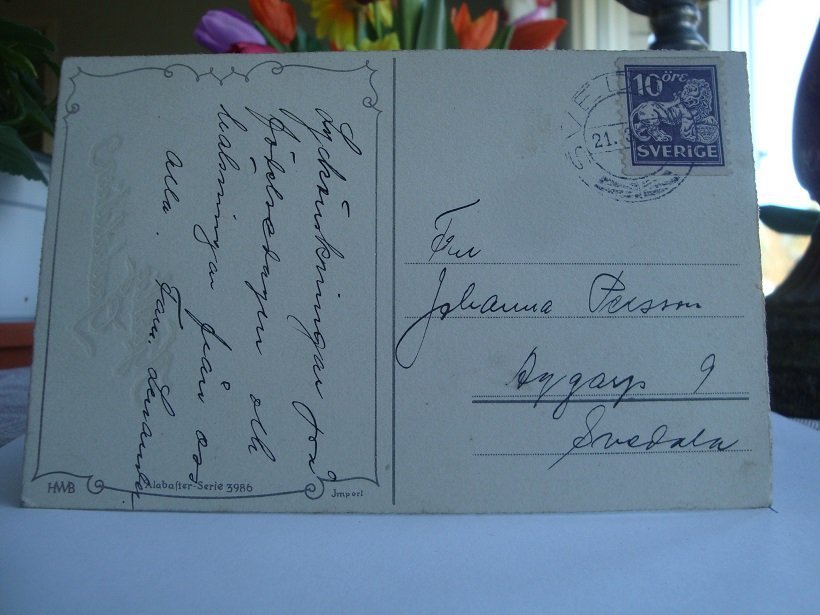 Lyckönskningar på
födelsedagen och
hälsningar från oss
alla. Fam.
HWB
Alabaster-Serie 3986
Import
10 öre
SVERIGE
SVE
21.
Fru
Johanna Persson
Aggarp 9
Svedala